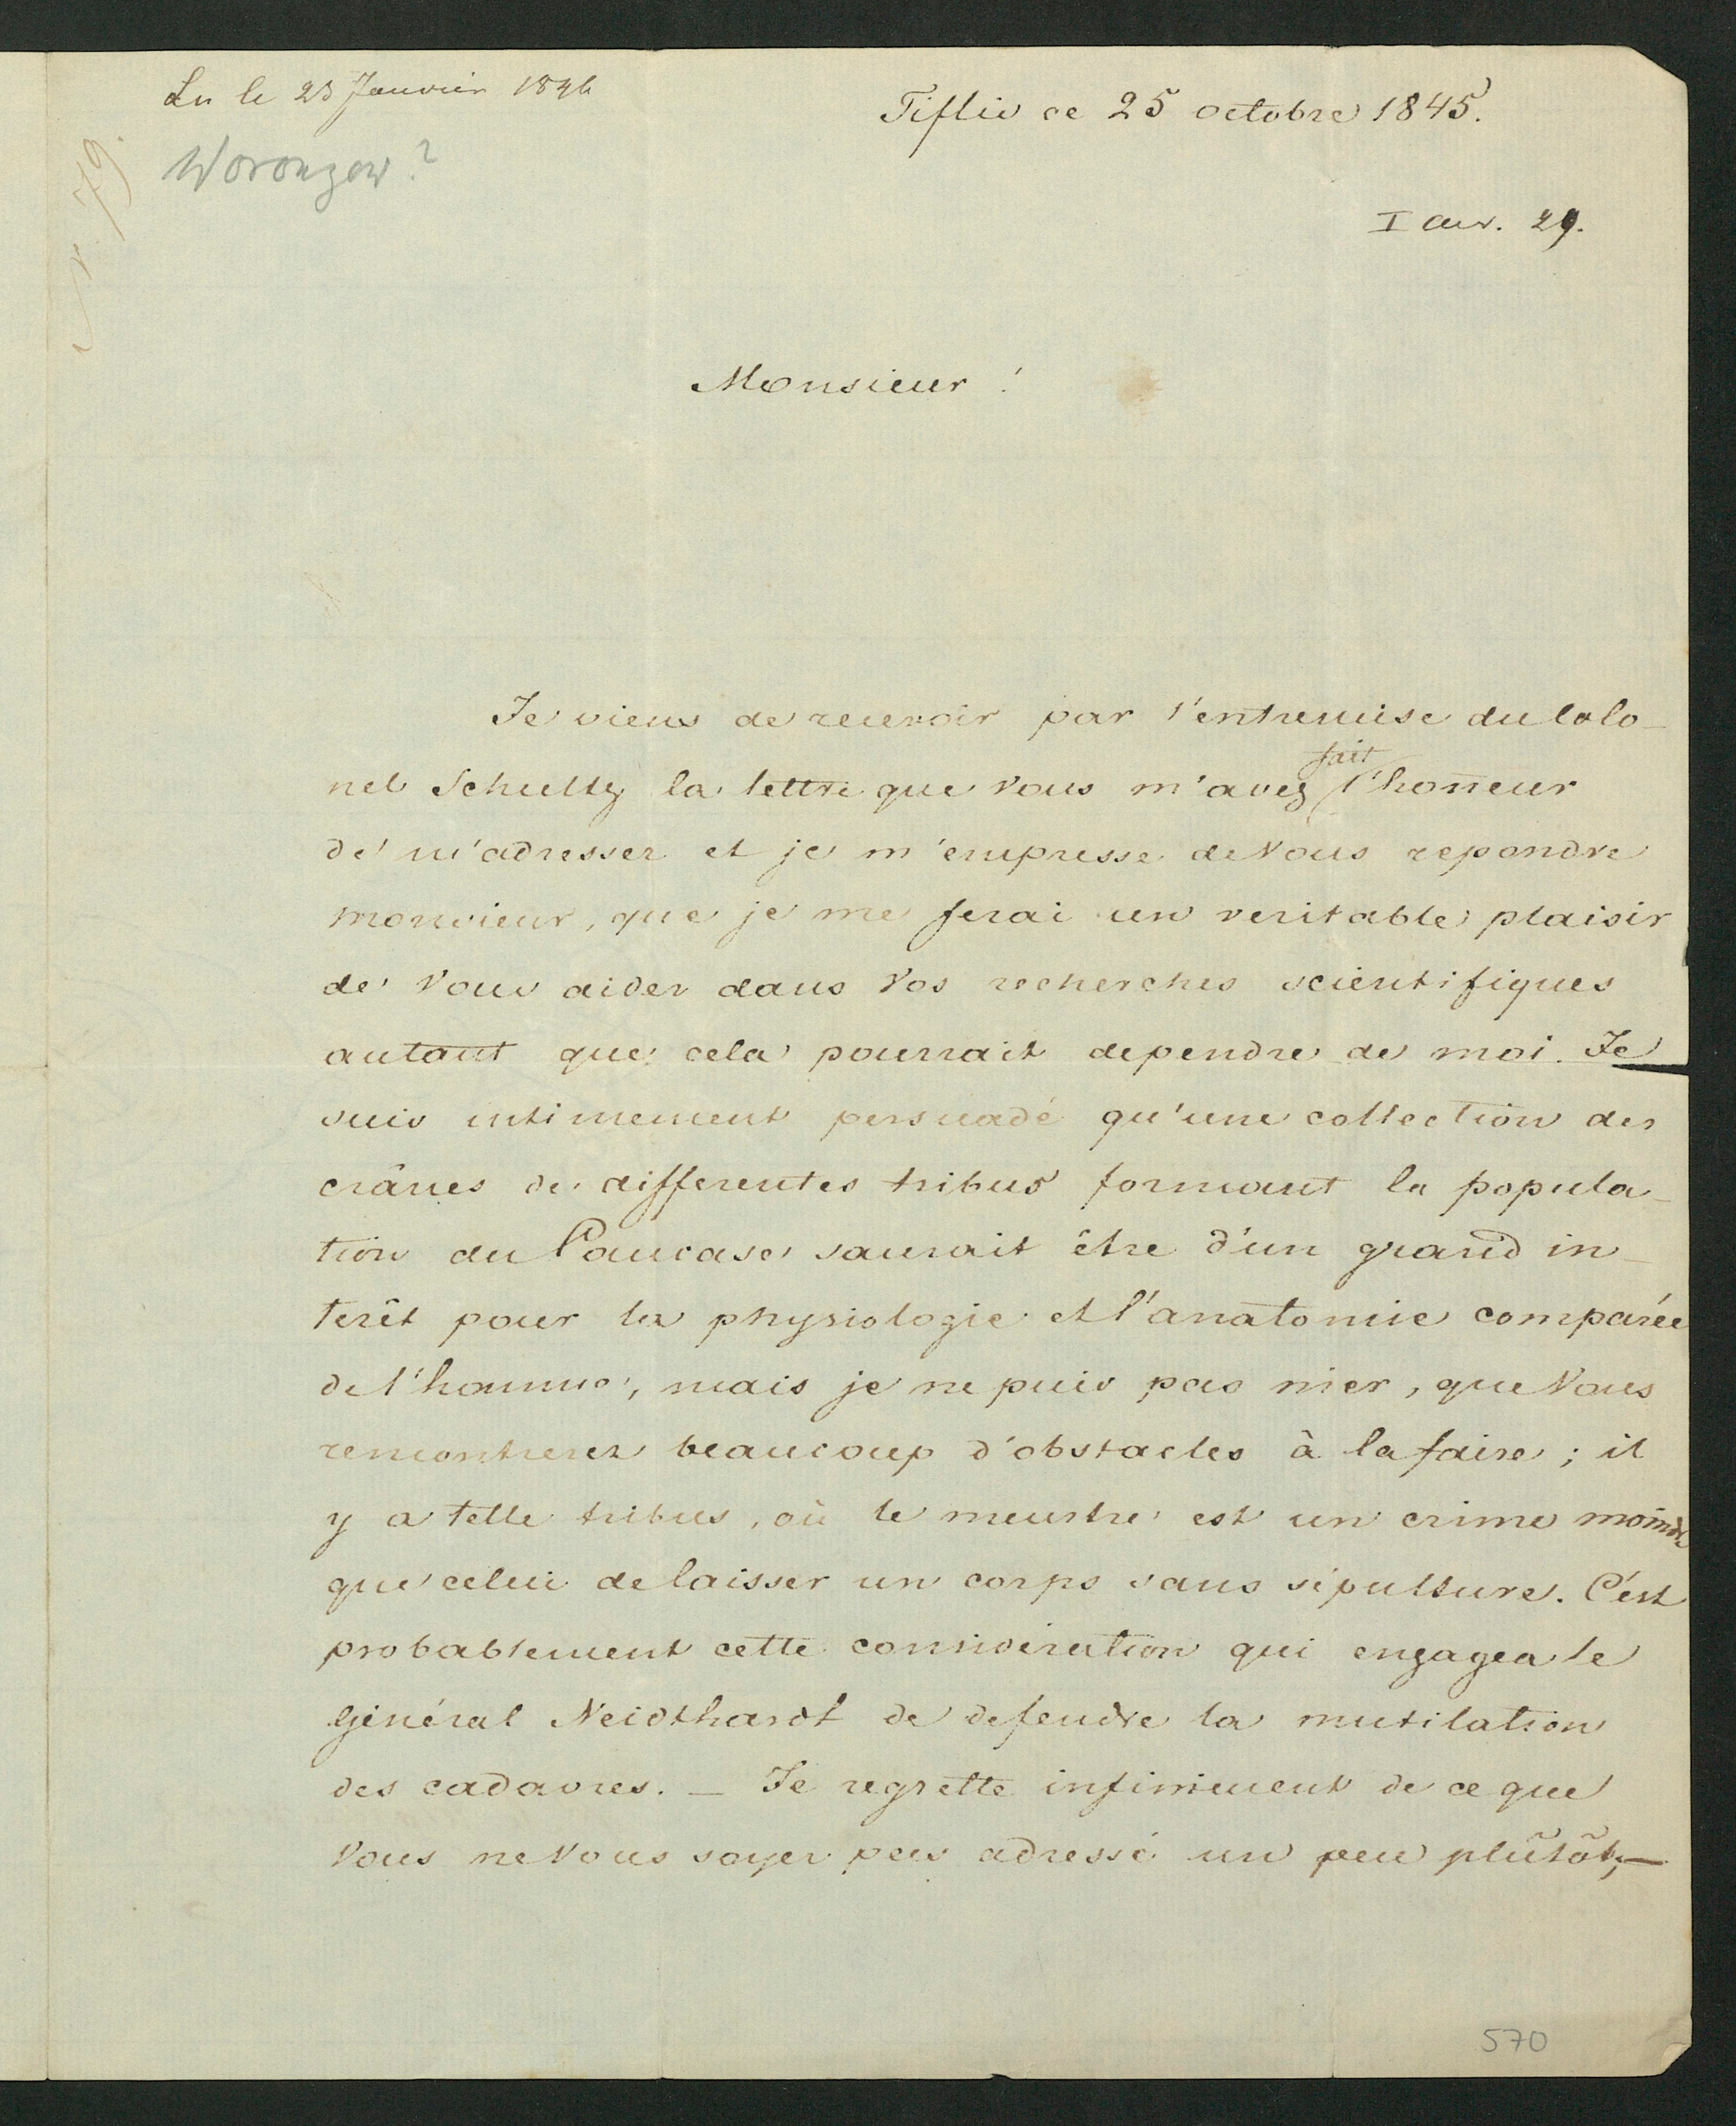 Lu le 23 Janvier 1846
Tiflis ce 25 octobre 1845.
Woronzow?
Nr. 79.
I 29.
Monsieur!
Je viens de recevoir par l'entremise du Colo-
nel Schultz la lettre que Vous m'avez fait l'honneur
de m'adresser et je m'empresse de Vous repondre
monsieur, que je me ferai un veritable plaisir
de Vous aider dans Vos recherches scientifiques
autant que cela pourrait dependre de moi. Je
suis intimement persuadé qu'une collection des
crânes de differentes tribus formant la popula-
tion du Caucase saurait être d'un grand in-
terêt pour la physiologie et l'anatomie comparée
de l'homme, mais je ne puis pas nier, que Vous
rencontrerez beaucoup d'obstacles à la faire; il
y a telle tribus, où le meurtre est un crime moindre
que celui de laisser un corps sans sépulture. C'est
probablement cette considération qui engagea le
général Neidthardt de defendre la mutilation
des cadavres. — Je regrette infiniment de ce que
Vous ne Vous soyez pas adressé un peu plûtôt,—
570